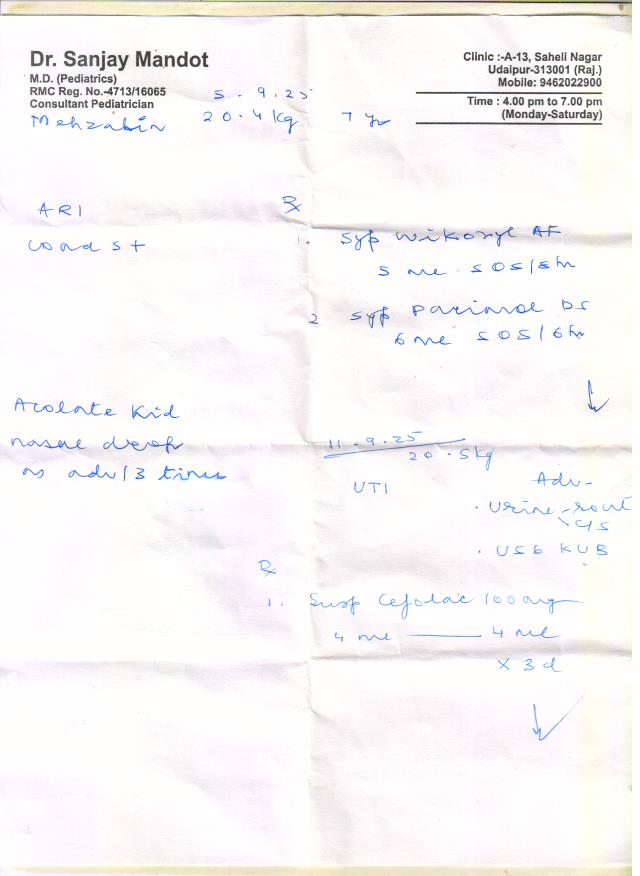 Dr. Sanjay Mandot
M.D. (Pediatrics)
RMC Reg. No.-4713/16065
Consultant Pediatrician
Clinic :-A-13, Saheli Nagar
Udaipur-313001 (Raj.)
Mobile: 9462022900
Time : 4.00 pm to 7.00 pm
(Monday-Saturday)
5.9.25
Mehzabin 20.4 kg 7 yr
ARI
Rx
1. Syp Wikoryl AF
5 ml SOS/8hr
2 Syp Parimol DS
6 ml SOS/6hr
nasal drop
as adv/3 times
11.9.25
20.5kg
UTI
Adv-
. Urine-rout
C/S
. USG KUB
Rx
1. Susp Cefolac 100mg
4 ml 4 ml
x 3d